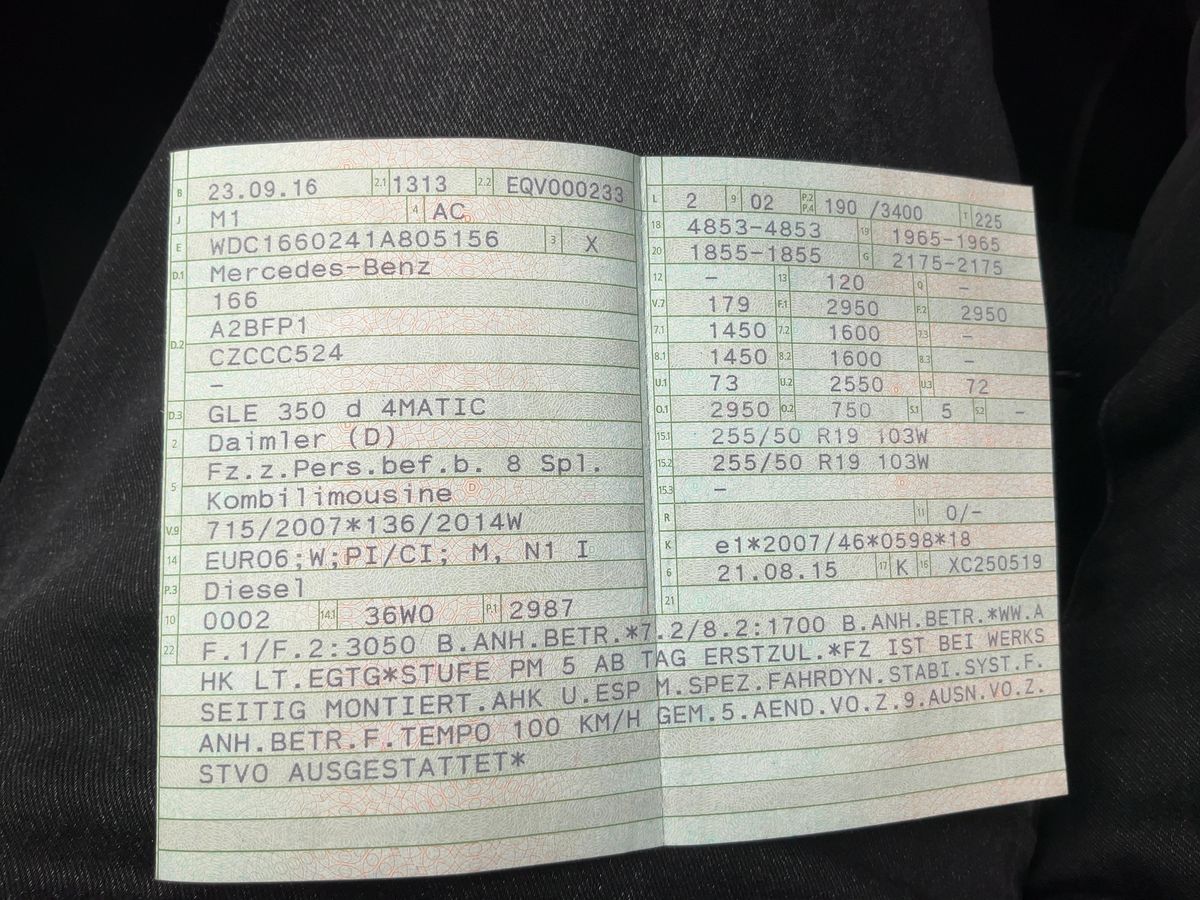 B 23.09.16 2.1 1313 2.2 EQV000233
J M1 4 AC
E WDC1660241A805156 3 X
D.1 Mercedes-Benz
166
D.2 A2BFP1
CZCCC524
–
D.3 GLE 350 d 4MATIC
2 Daimler (D)
5 Fz.z.Pers.bef.b. 8 Spl.
Kombilimousine
V.9 715/2007*136/2014W
14 EURO6;W;PI/CI; M, N1 I
P.3 Diesel
10 0002 14.1 36W0 P.1 2987
L 2 9 02 P.2 P.4 190 /3400 T 225
18 4853-4853 19 1965-1965
20 1855-1855 G 2175-2175
12 – 13 120 Q –
V.7 179 F.1 2950 F.2 2950
7.1 1450 7.2 1600 7.3 –
8.1 1450 8.2 1600 8.3 –
U.1 73 U.2 2550 U.3 72
O.1 2950 O.2 750 S.1 5 S.2 –
15.1 255/50 R19 103W
15.2 255/50 R19 103W
15.3 –
R 11 0/-
K e1*2007/46*0598*18
6 21.08.15 17 K 16 XC250519
21
22 F.1/F.2:3050 B.ANH.BETR.*7.2/8.2:1700 B.ANH.BETR.*WW.A
HK LT.EGTG*STUFE PM 5 AB TAG ERSTZUL.*FZ IST BEI WERKS
SEITIG MONTIERT.AHK U.ESP M.SPEZ.FAHRDYN.STABI.SYST.F.
ANH.BETR.F.TEMPO 100 KM/H GEM.5.AEND.VO.Z.9.AUSN.VO.Z.
STVO AUSGESTATTET*